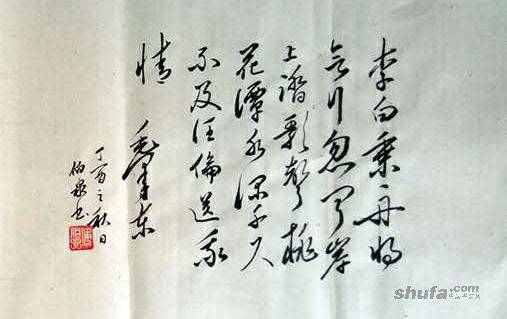 李白乘舟将
欲行忽闻岸
上踏歌聲桃
花潭水深千尺
不及汪倫送我
情 毛泽东
丁酉之秋日
伯泉书
shufa.com